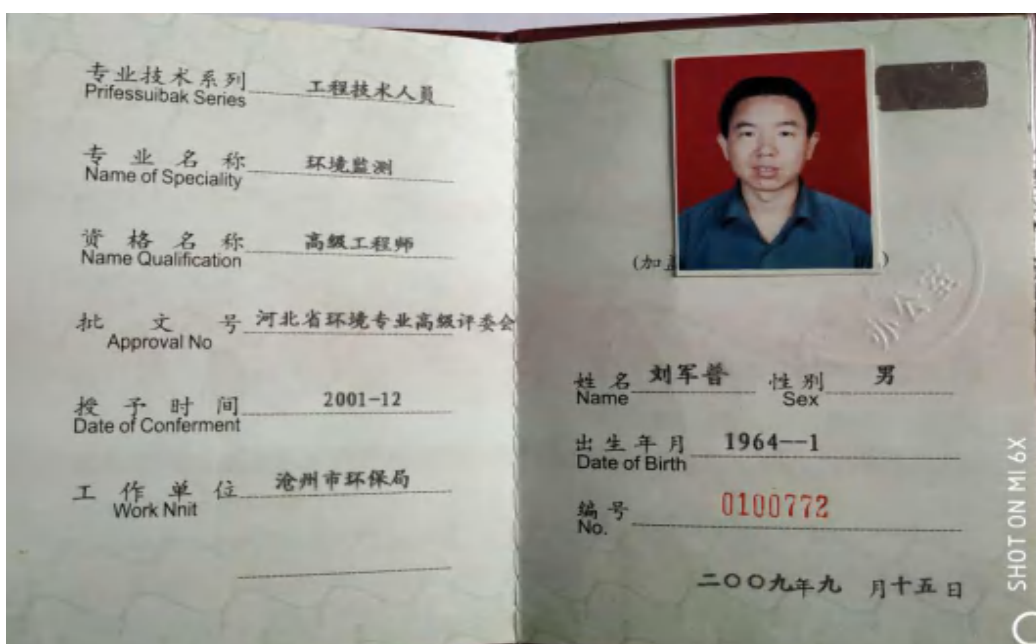 专业技术系列 工程技术人員
Prifessuibak Series
专业名称 环境监测
Name of Speciality
资格名称 高级工程师
Name Qualification
批文号 河北省环境专业高级评委会
Approval No
授予时间 2001-12
Date of Conferment
工作单位 沧州市环保局
Work Nnit
(加
)
办公室
姓名 刘军普 性别 男
Name Sex
出生年月 1964--1
Date of Birth
编号 0100772
No.
二〇〇九年九月十五日
SHOT ON MI 6X